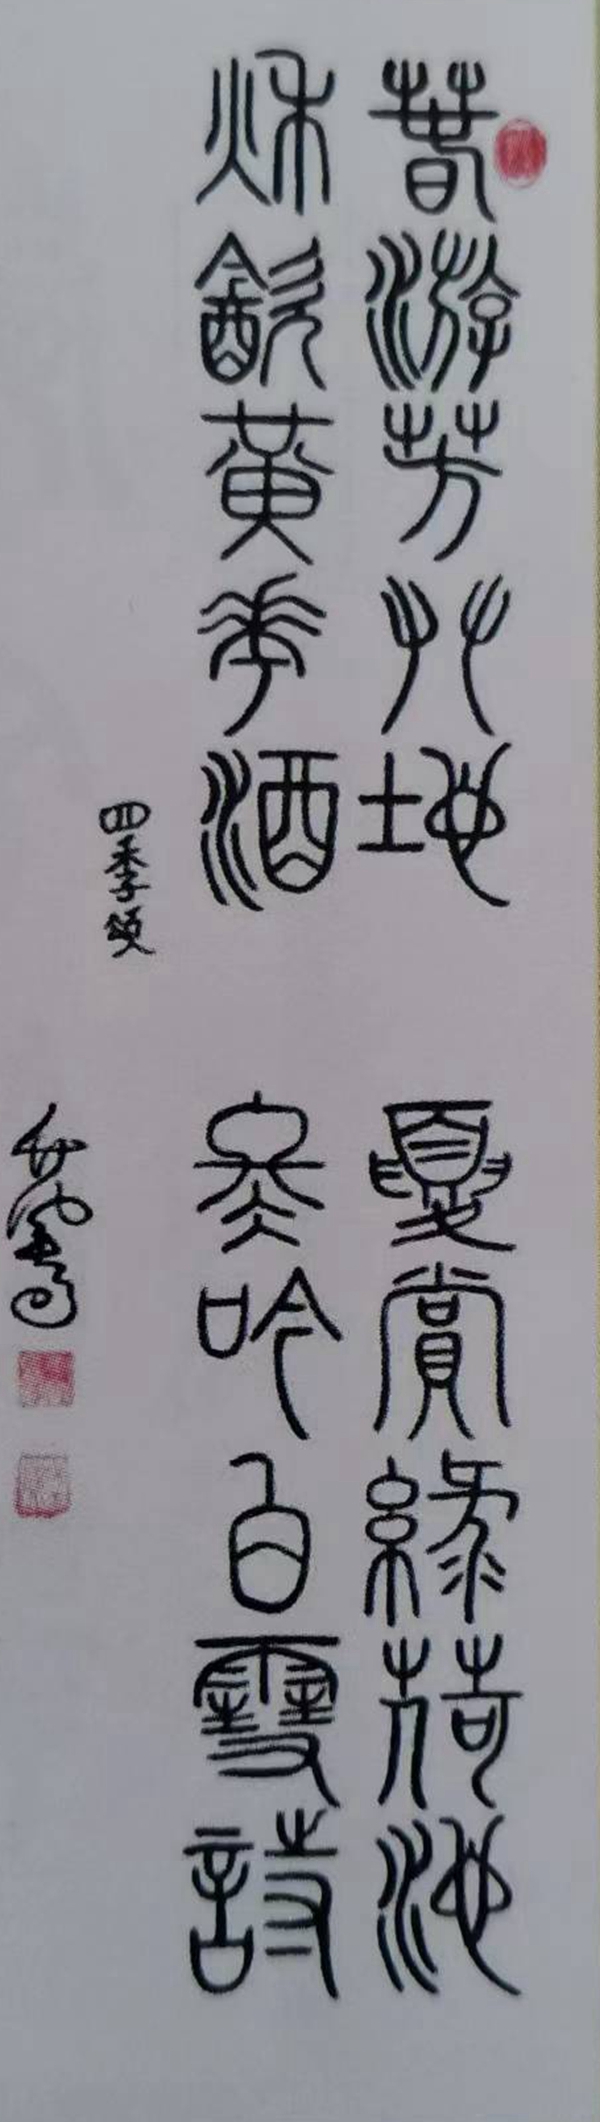 春游芳艸地
夏賞綠荷池
秌飲黃華酒
冬吟白雪詩
四季頌